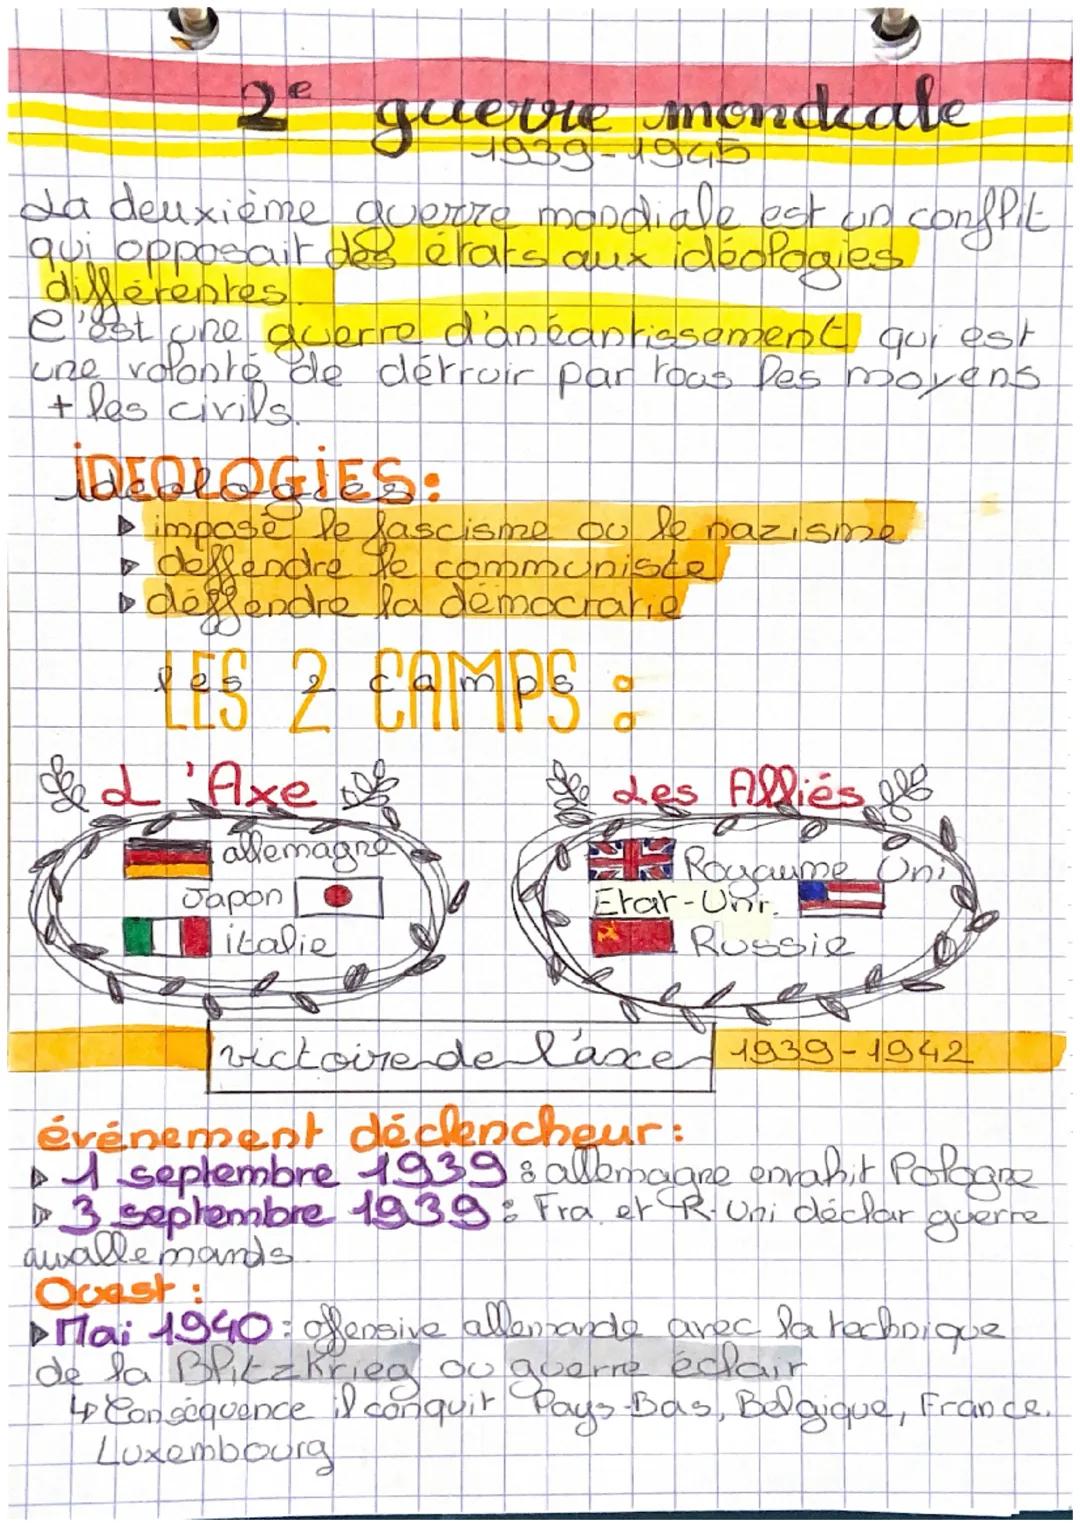 2e guerre mondiale
1939-1945
La deuxième guerre mondiale est un conflit
qui opposait des états aux idéologies
différentes.
C'est une guerre d'anéantissement qui est
une volonté de détruir par tous les moyens
+ les civils.
iDEOLOGiES:
idéologies
▷ imposé le fascisme ou le nazisme
▷ deffendre le communiste
▷ déffendre la démocratie
LES 2 CAMPS :
les 2 camps
L'Axe
Les Alliés
allemagne
Japon
italie
Royaume Uni
Etat-Uni.
Russie
victoire de l'axe
1939-1942
événement déclencheur:
▷ 1 septembre 1939 : allemagne envahit Pologne
▷ 3 septembre 1939 : Fra et R-Uni déclar guerre
aux allemands
Ouest :
▷ Mai 1940 : offensive allemande avec la technique
de la Blitzkrieg ou guerre éclair
↳ Conséquence il conquit Pays-Bas, Belgique, France.
Luxembourg